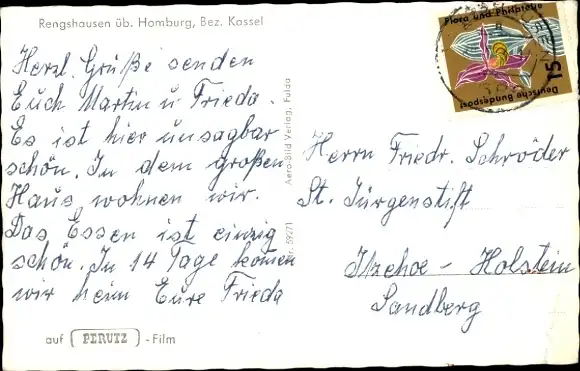 Rengshausen üb. Homburg, Bez. Kassel
Herzl. Grüße senden
Euch Martin u Frieda.
Es ist hier unsagbar
schön. In dem großen
Haus wohnen wir.
Das Essen ist einzig
schön. In 14 Tage komen
wir heim Eure Frieda
auf PERUTZ -Film
Aero-Bild Verlag, Fulda
Nr. 59271
Flora und Philatelie
15
Deutsche Bundespost
Herrn Friedr. Schröder
St. Jürgenstift
Itzehoe - Holstein
Sandberg